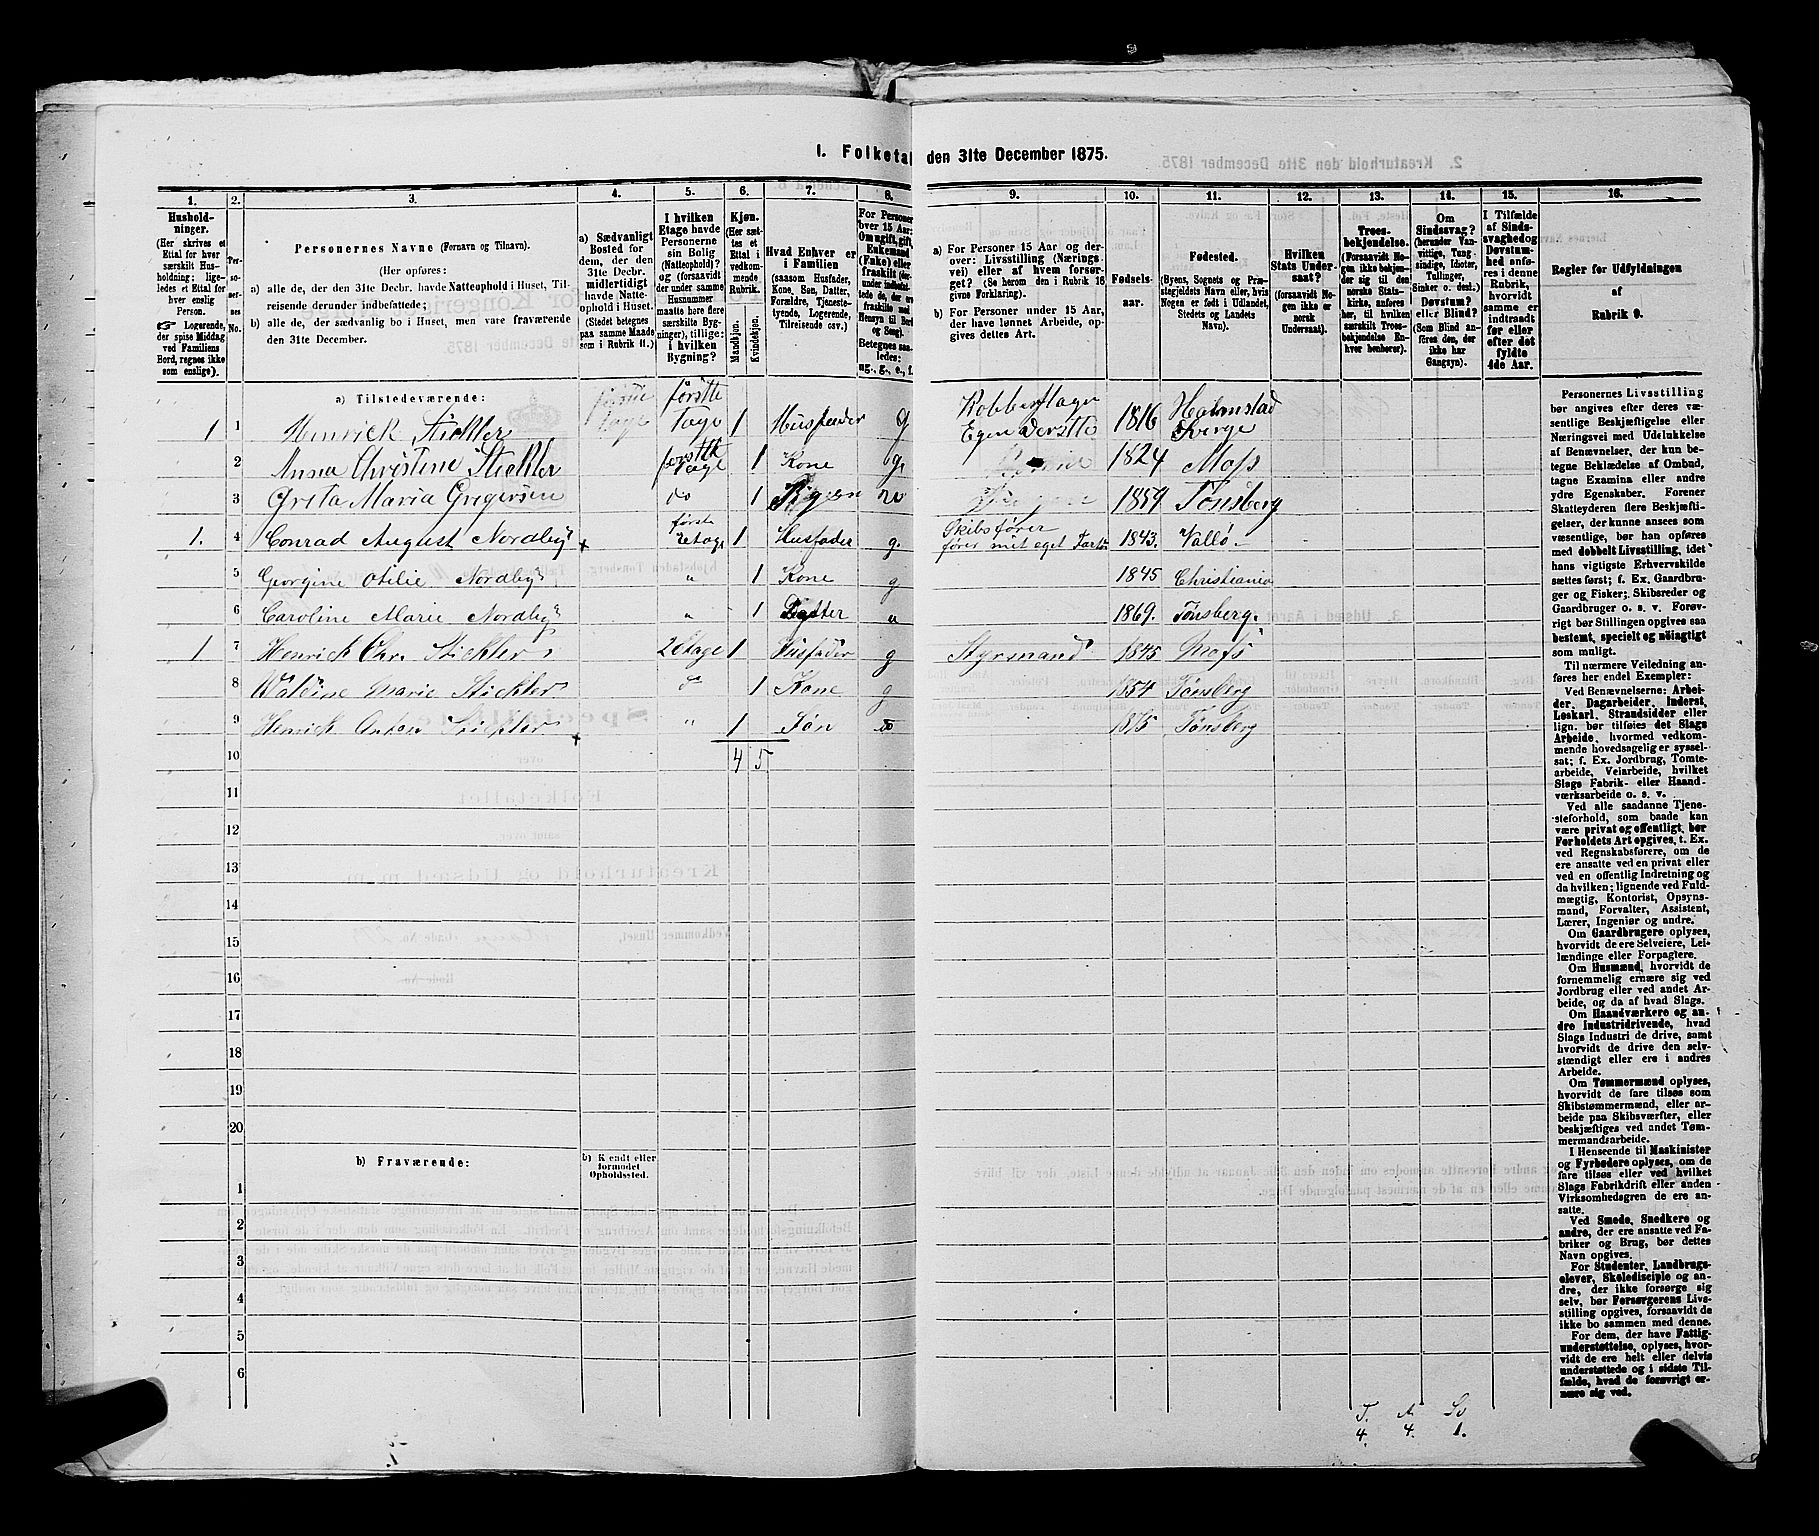 I. Folketal den 31te December 1875.
1. 2. 3. 4. 5. 6. 7. 8. 9. 10. 11. 12. 13. 14. 15. 16.
Hushold-
ninger.
(Her skrives et
Ettal for hver
særskilt Hus-
holdning; lige-
ledes et Ettal for
hver enslig
Person.
☞ Logerende,
der spise Middag
ved Familiens
Bord, regnes ikke
som enslige).
Per-
so-
ner-
nes
No.
Personernes Navne (Fornavn og Tilnavn).
(Her opføres:
a) alle de, der den 31te Decbr. havde Natteophold i Huset, Til-
reisende derunder indbefattede;
b) alle de, der sædvanlig bo i Huset, men vare fraværende
den 31te December.
a) Sædvanligt
Bosted for
dem, der den
31te Decbr.
midlertidigt
havde Natte-
ophold i Huset.
(Stedet betegnes
paa samme Maade
som i Rubrik 11.)
I hvilken
Etage havde
Personerne
sin Bolig
(Natteophold)?
(forsaavidt
der under samme
Husnummer
maatte høre flere
særskilte Byg-
ninger), tillige:
i hvilken
Bygning?
Kjøn.
(Her sæt-
tes et
Ettal i
vedkom-
mende
Rubrik.
Mandkjøn.
Kvindekjøn.
Hvad Enhver er
i Familien
(saasom Husfader,
Kone, Søn, Datter,
Forældre, Tjeneste-
tyende, Logerende,
Tilreisende osv.)
For Personer
over 15 Aar:
Om ugift, gift,
Enkemand
(Enke) eller
fraskilt
Betegnes saa-
ledes:
ug., g., e., f.
a) For Personer 15 Aar og der-
over: Livsstilling (Nærings-
vei) eller af hvem forsør-
get? (Se herom den i Rubrik 16
givne Forklaring).
b) For Personer under 15 Aar,
der have lønnet Arbeide, op-
gives dettes Art.
Fødsels-
aar.
Fødested.
(Byens, Sognets og Præ-
stegjeldets Navn eller, hvis
Nogen er født i Udlandet,
Stedets og Landets
Navn).
Hvilken
Stats Under-
saat?
(forsaavidt No-
gen ikke er
norsk
Undersaat).
Troes-
bekjendelse.
(Forsaavidt No-
gen ikke bekjen-
der sig til den
norske Stats-
kirke, anføres
her, til hvilken
særskilt Troes-
bekjendelse En-
hver henhører).
Om
Sindssvag?
(herunder Van-
vittige, Tung-
sindige, Idioter,
Tullinger,
Sinker o. desl.)
Døvstum?
eller Blind?
(Som Blind an-
føres den, der
ikke har
Gangsyn).
I Tilfælde
af Sinds-
svaghed og
Døvstum-
hed anfø-
res i denne
Rubrik,
hvorvidt
samme er
indtraadt
før eller
efter det
fyldte
4de Aar.
Regler for Udfyldningen
af
Rubrik 9.
a) Tilstedeværende:
1 1 Henrick Stickler første Etage første Etage 1 Husfader g Kobberslager Egen Versttd 1816 Halmstad Sverge
2 Anna Christine Stickler første Etage 1 Kone g. 1824 Moss
3 Greta Maria Grigersen do 1 Pigen 1854 Tønsberg
1. 4 Conrad August Nordby første Etage 1 Husfader g. Skibsfører fører mit eget Fartøi 1843. Vallø
5 Georgine Otilie Nordby " 1 Kone g 1845 Christiania
6 Caroline Marie Nordby " 1 Datter u 1869. Tønsberg.
1 7 Henrick Chr. Stickler 2 Etage 1 Husfader g Styrmand 1845 Moss
8 Valine Marie Stickler do 1 Kone g 1854 Tønsberg
9 Henrick Anton Stickler " 1 Søn 1875 Tønsberg
10 4 5
11
12
13
14
15
16
17
18
19
20
b) Fraværende:
b) Kjendt eller
formodet
Opholdssted.
1
2
3
4
5
6
T. N. Sv
4. 4. 1.
Personernes Livsstilling
bør angives efter deres væ-
sentlige Beskjæftigelse eller
Næringsvei med Udelukkelse
af Benævnelser, der kun be-
tegne Beklædelse af Ombud,
tagne Examina eller andre
ydre Egenskaber. Forener
Skatteyderen flere Beskjæfti-
gelser, der kunne ansees som
væsentlige, bør han opføres
med dobbelt Livsstilling, idet
hans vigtigste Erhvervskilde
sættes først; f. Ex. Gaardbru-
ger og Fisker; Skibsreder og
Gaardbruger o. s. v. Forøv-
rigt bør Stillingen opgives saa
bestemt, specielt og nøiagtigt
som muligt.
Til nærmere Veiledning an-
føres her endel Exempler:
Ved Benævnelserne: Arbei-
der, Dagarbeider, Inderst,
Løskarl, Strandsidder eller
lign. bør tilføies det Slags
Arbeide, hvormed vedkom-
mende hovedsagelig er syssel-
sat; f. Ex. Jordbrug, Tomte-
arbeide, Veiarbeide, hvilket
Slags Fabrik- eller Haand-
værksarbeide o. s. v.
Ved alle saadanne Tjene-
steforhold, som baade kan
være privat og offentligt, bør
Forholdets Art opgives, t. Ex.
ved Regnskabsførere, om de
ere ansatte ved en privat eller
ved en offentlig Indretning og
da hvilken; lignende ved Fuld-
mægtig, Kontorist, Opsyns-
mand, Forvalter, Assistent,
Lærer, Ingeniør og andre.
Om Gaardbrugere oplyses,
hvorvidt de ere Selveiere, Lei-
lændinge eller Forpagtere.
Om Husmænd, hvorvidt de
fornemmelig ernære sig ved
Jordbrug eller ved andet Ar-
beide, og da af hvad Slags.
Om Haandværkere og an-
dre Industridrivende, hvad
Slags Industri de drive, samt
hvorvidt de drive den selv-
stændigt eller ere i andres
Arbeide.
Om Tømmermænd oplyses,
hvorvidt de fare tilsøs som
Skibstømmermænd, eller ar-
beide paa Skibsværfter, eller
beskjæftiges ved andet Tøm-
mermandsarbeide.
I Henseende til Maskinister
og Fyrbødere oplyses, om de
fare tilsøs eller ved hvilket
Slags Fabrikdrift eller anden
Virksomhedsgren de ere an-
satte.
Ved Smede, Snedkere og
andre, der ere ansatte ved Fa-
briker og Brug, bør dettes
Navn opgives.
For Studenter, Landbrugs-
elever, Skoledisciple og an-
dre, der ikke forsørge sig
selv, bør Forsørgerens Livs-
stilling opgives, forsaavidt de
ikke bo sammen med denne.
For dem, der have Fattig-
understøttelse, oplyses, hvor-
vidt de ere helt eller delvis
understøttede og i sidste Til-
fælde, hvad de forøvrigt er-
nære sig ved.